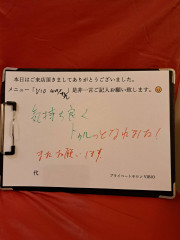 本日はご来店頂きましてありがとうございました。
メニュー「VIO」是非一言ご記入お願い致します。
気持ち良く
トゥルっとなれました！
またお願いします
代